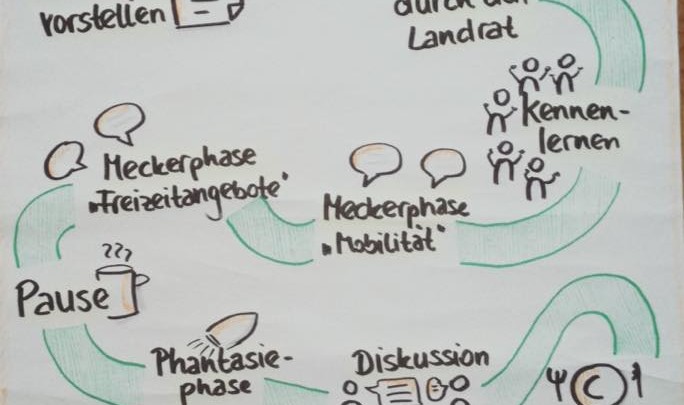 vorstellen
durch den
Landrat
Kennen-
lernen
Meckerphase
„Freizeitangebote"
Meckerphase
„Mobilität"
Pause
Phantasie-
phase
Diskussion